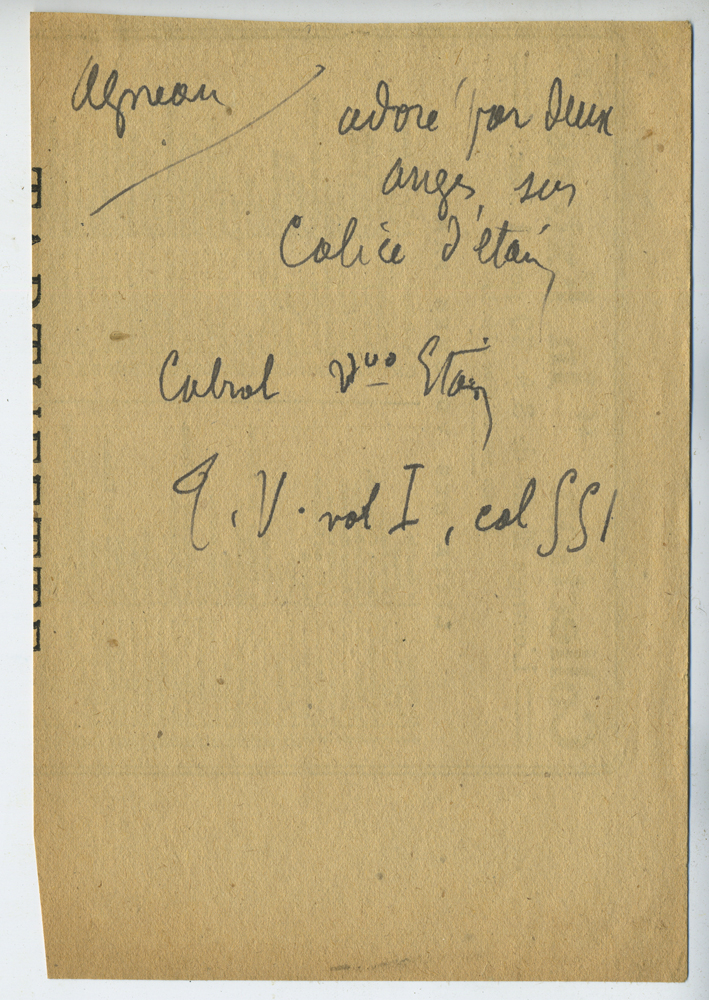 Agneau
adoré par deux
anges, sur
Calice d'étain
Cabrol Vᵘᵒ Etain
T. V. vol I, col 551